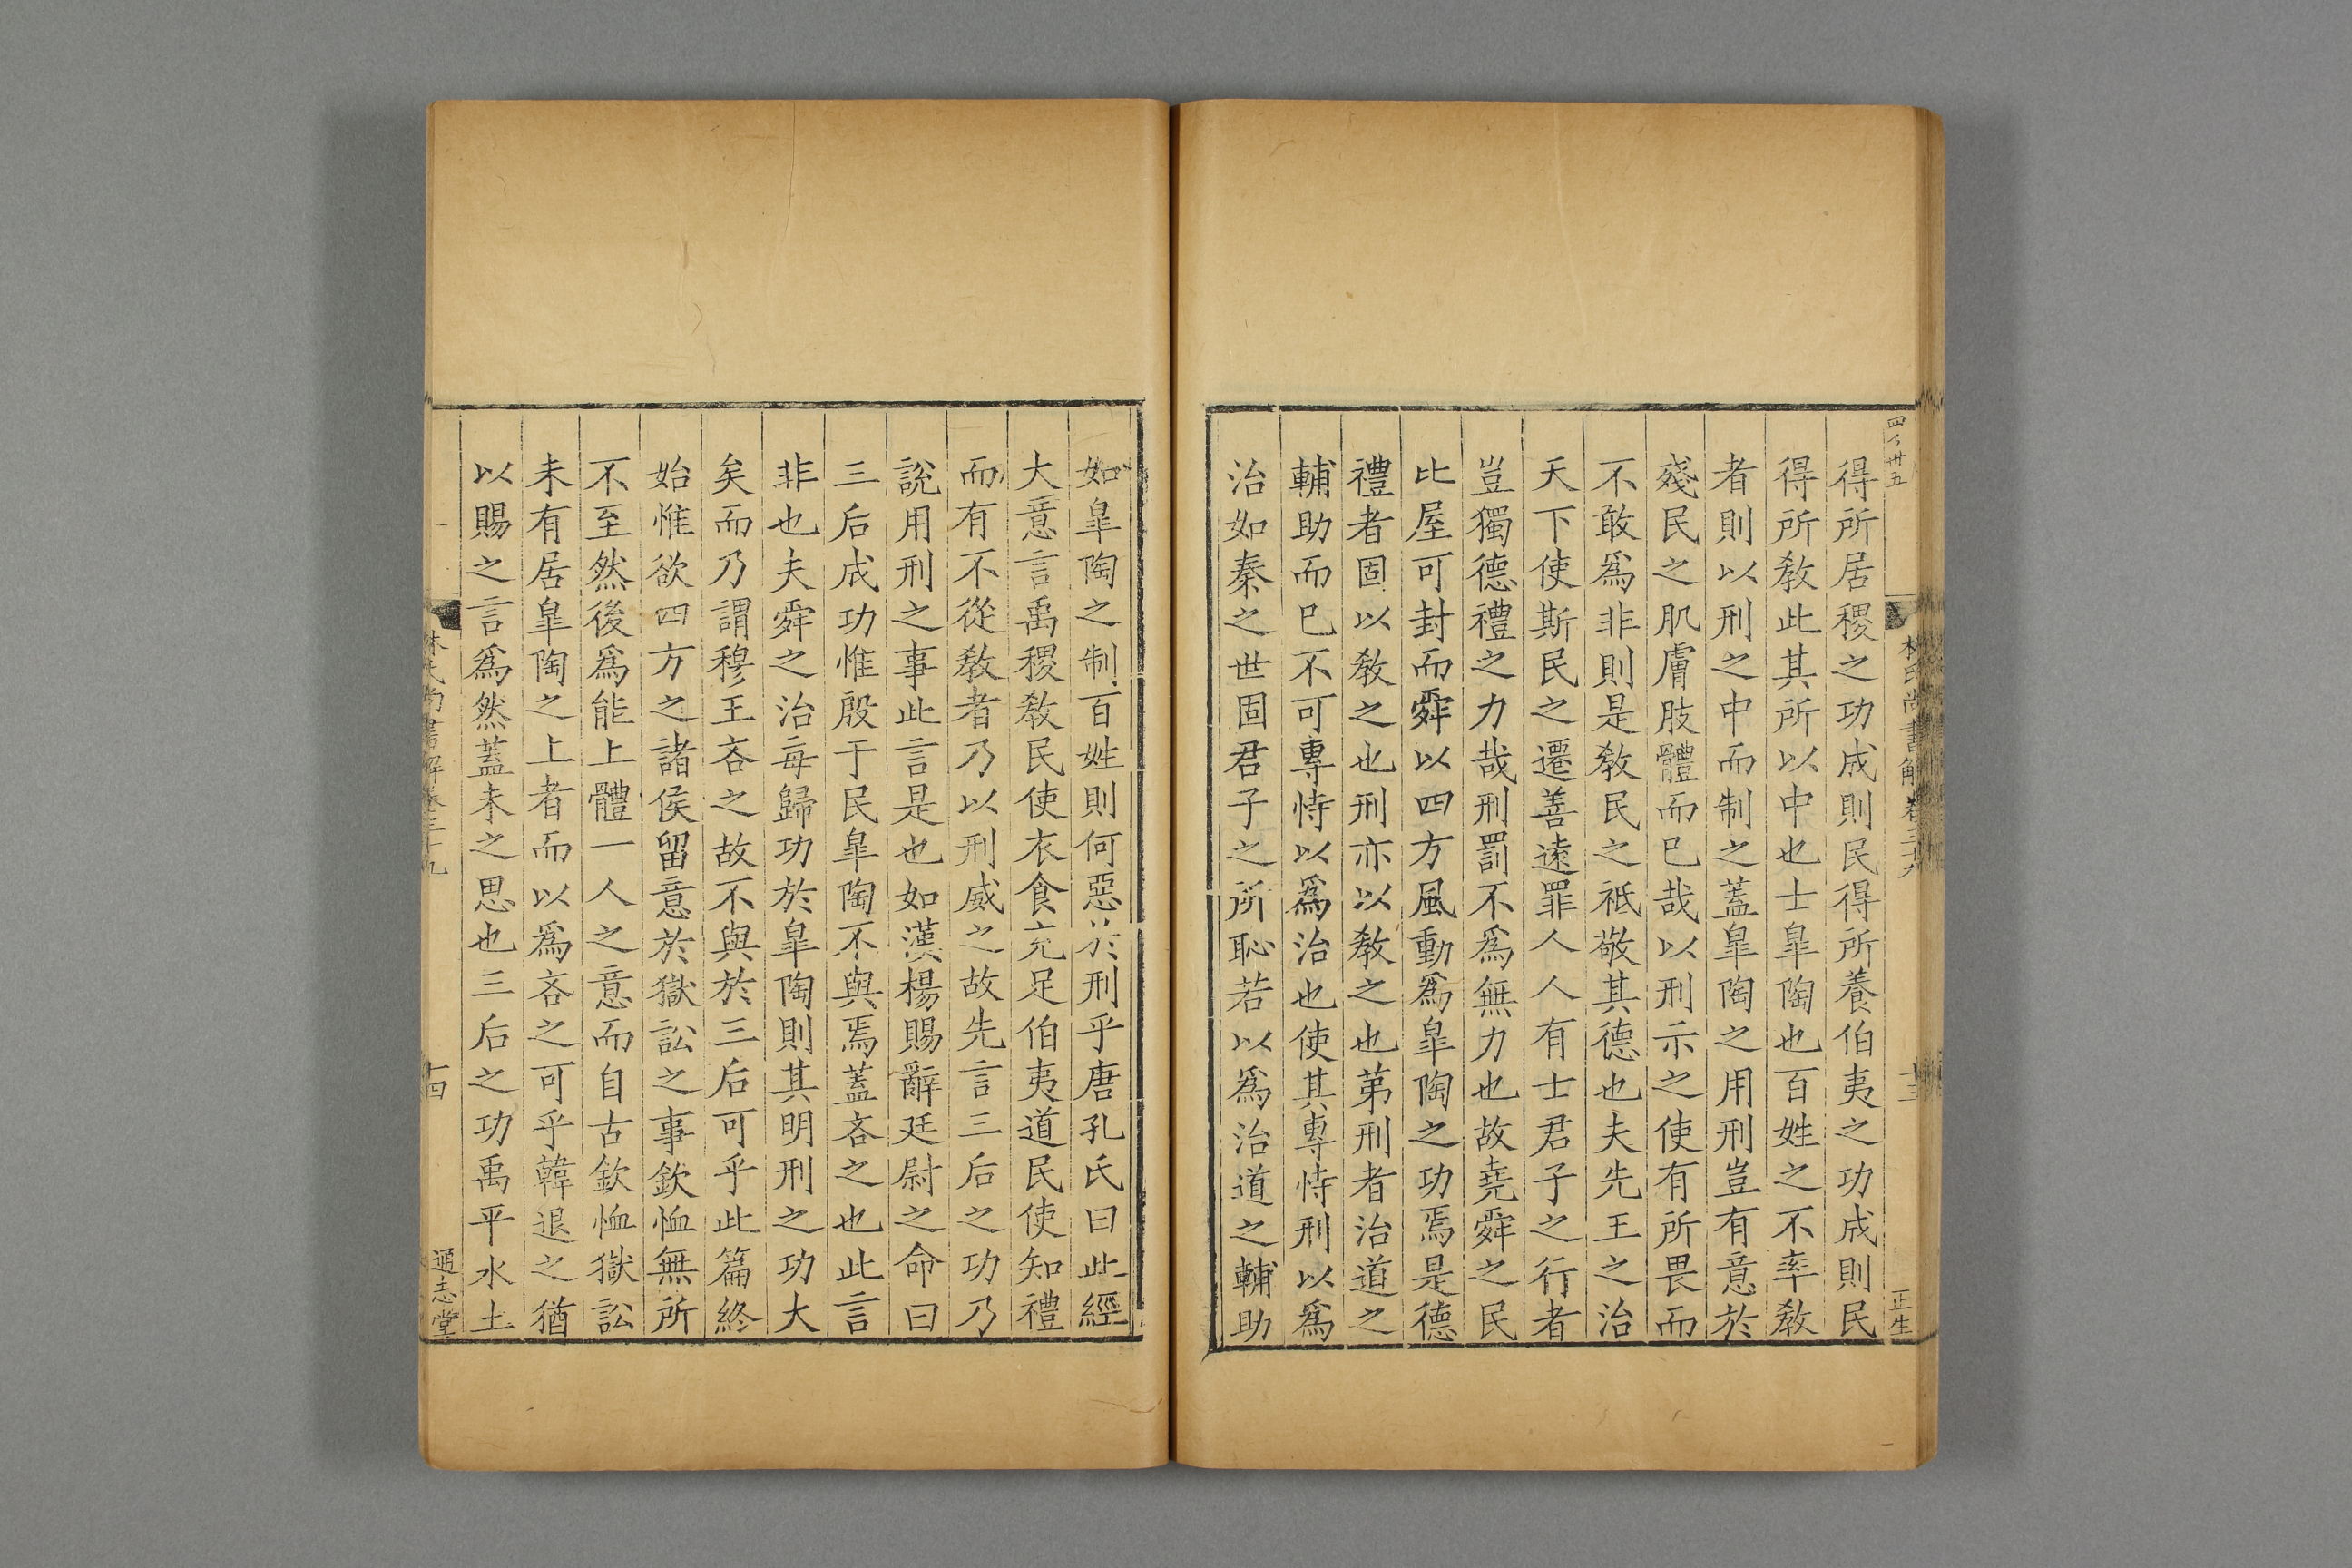 得所居稷之功成則民得所養伯夷之功成則民
得所敎此其所以中也士皐陶也百姓之不率敎
者則以刑之中而制之蓋皐陶之用刑豈有意於
殘民之肌膚肢體而已哉以刑示之使有所畏而
不敢爲非則是敎民之祗敬其德也夫先王之治
天下使斯民之遷善遠罪人人有士君子之行者
豈獨德禮之力哉刑罰不爲無力也故堯舜之民
比屋可封而舜以四方風動爲皐陶之功焉是德
禮者固以敎之也刑亦以敎之也第刑者治道之
輔助而已不可專恃以爲治也使其專恃刑以爲
治如秦之世固君子之所恥若以爲治道之輔助
正生
如皐陶之制百姓則何惡於刑乎唐孔氏曰此經
大意言禹稷敎民使衣食充足伯夷道民使知禮
而有不從敎者乃以刑威之故先言三后之功乃
說用刑之事此言是也如漢楊賜辭廷尉之命曰
三后成功惟殷于民皐陶不與焉蓋吝之也此言
非也夫舜之治每歸功於皐陶則其明刑之功大
矣而乃謂穆王吝之故不與於三后可乎此篇終
始惟欲四方之諸侯留意於獄訟之事欽恤無所
不至然後爲能上體一人之意而自古欽恤獄訟
未有居皐陶之上者而以爲吝之可乎韓退之猶
以賜之言爲然蓋未之思也三后之功禹平水土
林氏尚書解卷三十九
十四
通志堂